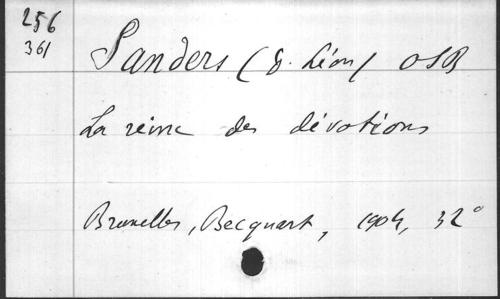 256
361
Sanders (D. Léon) OSB
La reine des dévotions
Bruxelles, Becquart, 1904, 32°